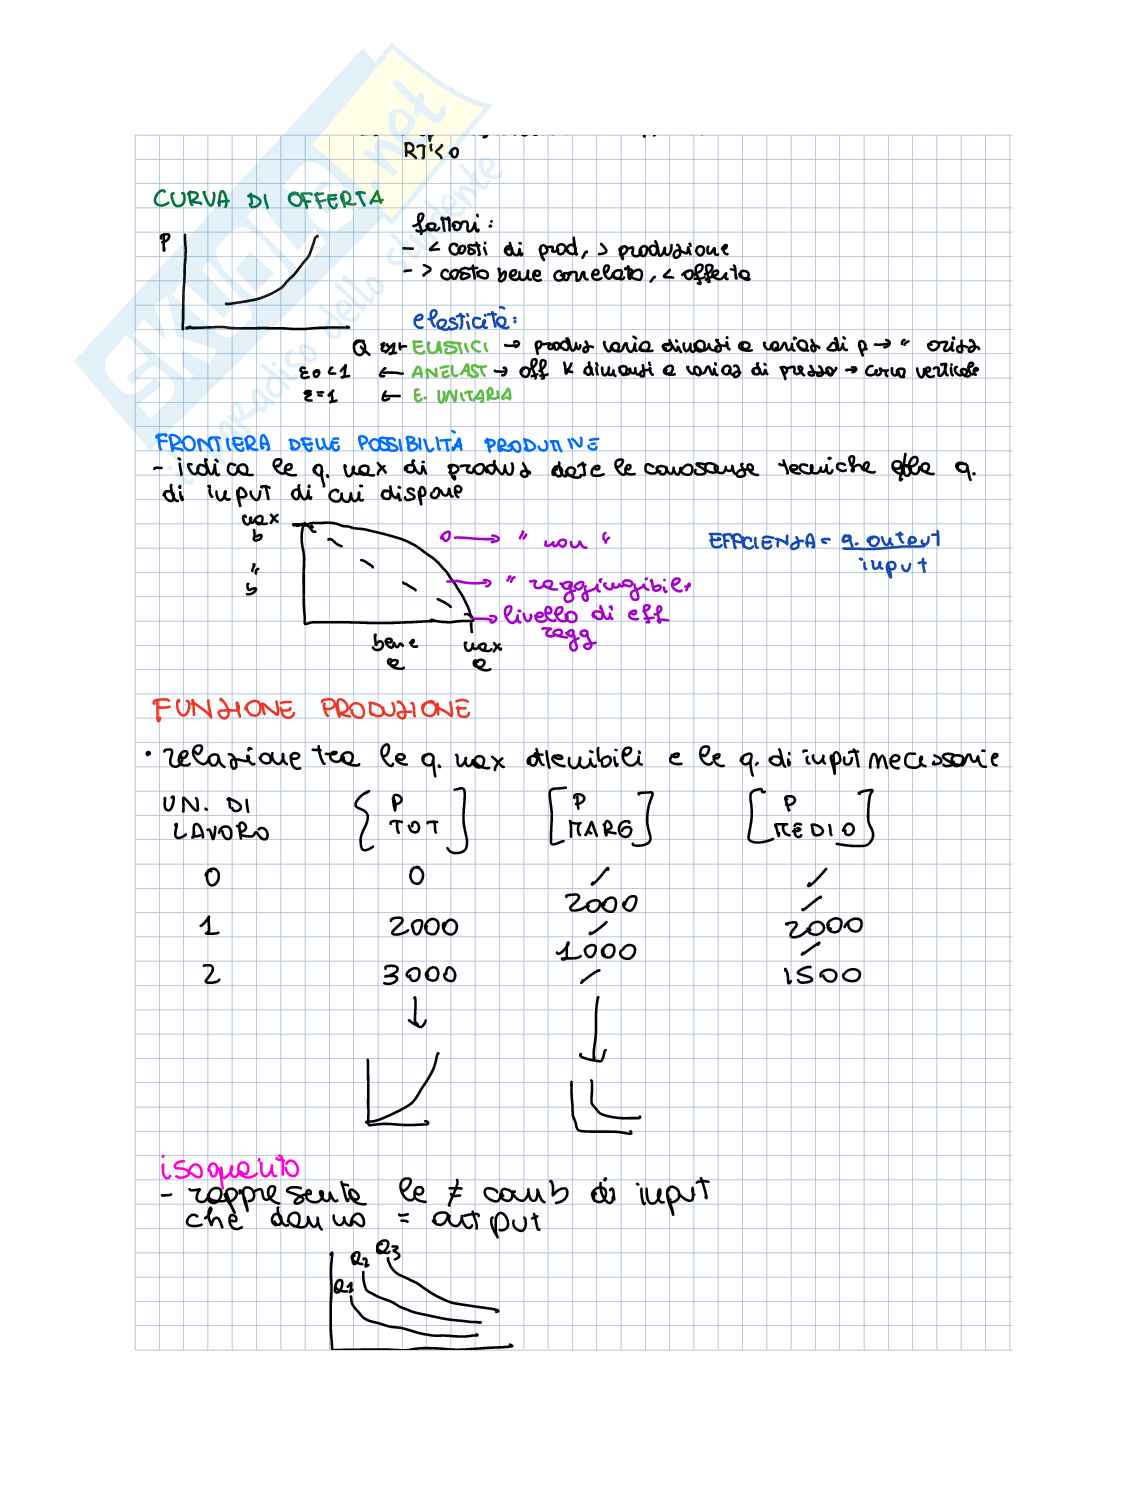 RTi<0
CURVA DI OFFERTA
fattori:
P
- < costi di prod, > produzione
- > costo bene correlato, < offerta
elasticità:
ELASTICI → produz varia dinanzi a variaz di p → " orizz
ε0<1 ← ANELAST → off K dinanzi a variaz di prezzo → curva verticale
ε=1 ← E. UNITARIA
FRONTIERA DELLE POSSIBILITÀ PRODUTTIVE
- indica le q. max di produz date le conoscenze tecniche e la q.
di input di cui dispone
max
b
" non "
EFFICIENZA = q. output
input
"
b
" raggiungibile
livello di eff
ragg
bene
a
max
a
FUNZIONE PRODUZIONE
• relazione tra le q. max ottenibili e le q. di input necessarie
UN. DI
LAVORO
P
TOT
P
MARG
P
MEDIO
0 0 / /
2000 /
1 2000 / 2000
1000 /
2 3000 / 1500
isoquanto
- rappresenta le ≠ comb di input
che danno = output
Q1 Q2 Q3
SKUOLA.net
paradiso dello studente